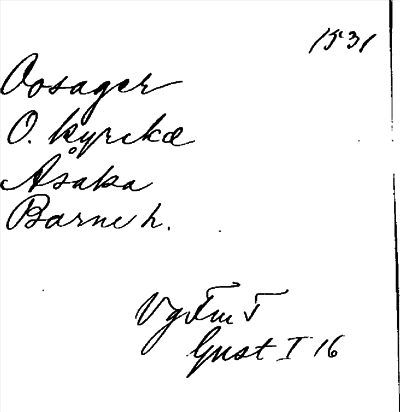 1531
Oosager
O. kyrckæ
Åsaka
Barne h.
VgFmT
Gust I 16